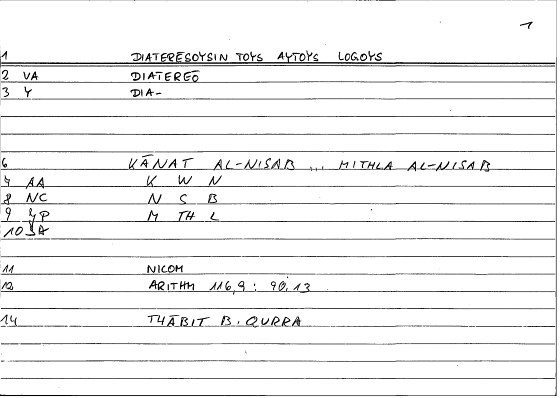 1
1 DIATERESOYSIN TOYS AYTOYS LOGOYS
2 VA DIATEREŌ
3 Y DIA-
6 KĀNAT AL-NISAB ... MITHLA AL-NISAB
4 AA K W N
8 NC N S B
9 YP M TH L
10 JA
11 NICOM
12 ARITHM 116,9 : 90.13
14 THĀBIT B. QURRA